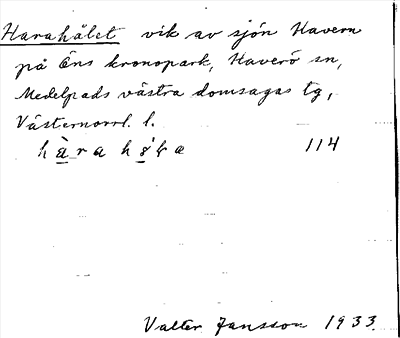 Harahålet vik av sjön Havern
på Öns kronopark, Haverö sn,
Medelpads västra domsagas tg,
Västernorrl. l.
114
Valter Jansson 1933.